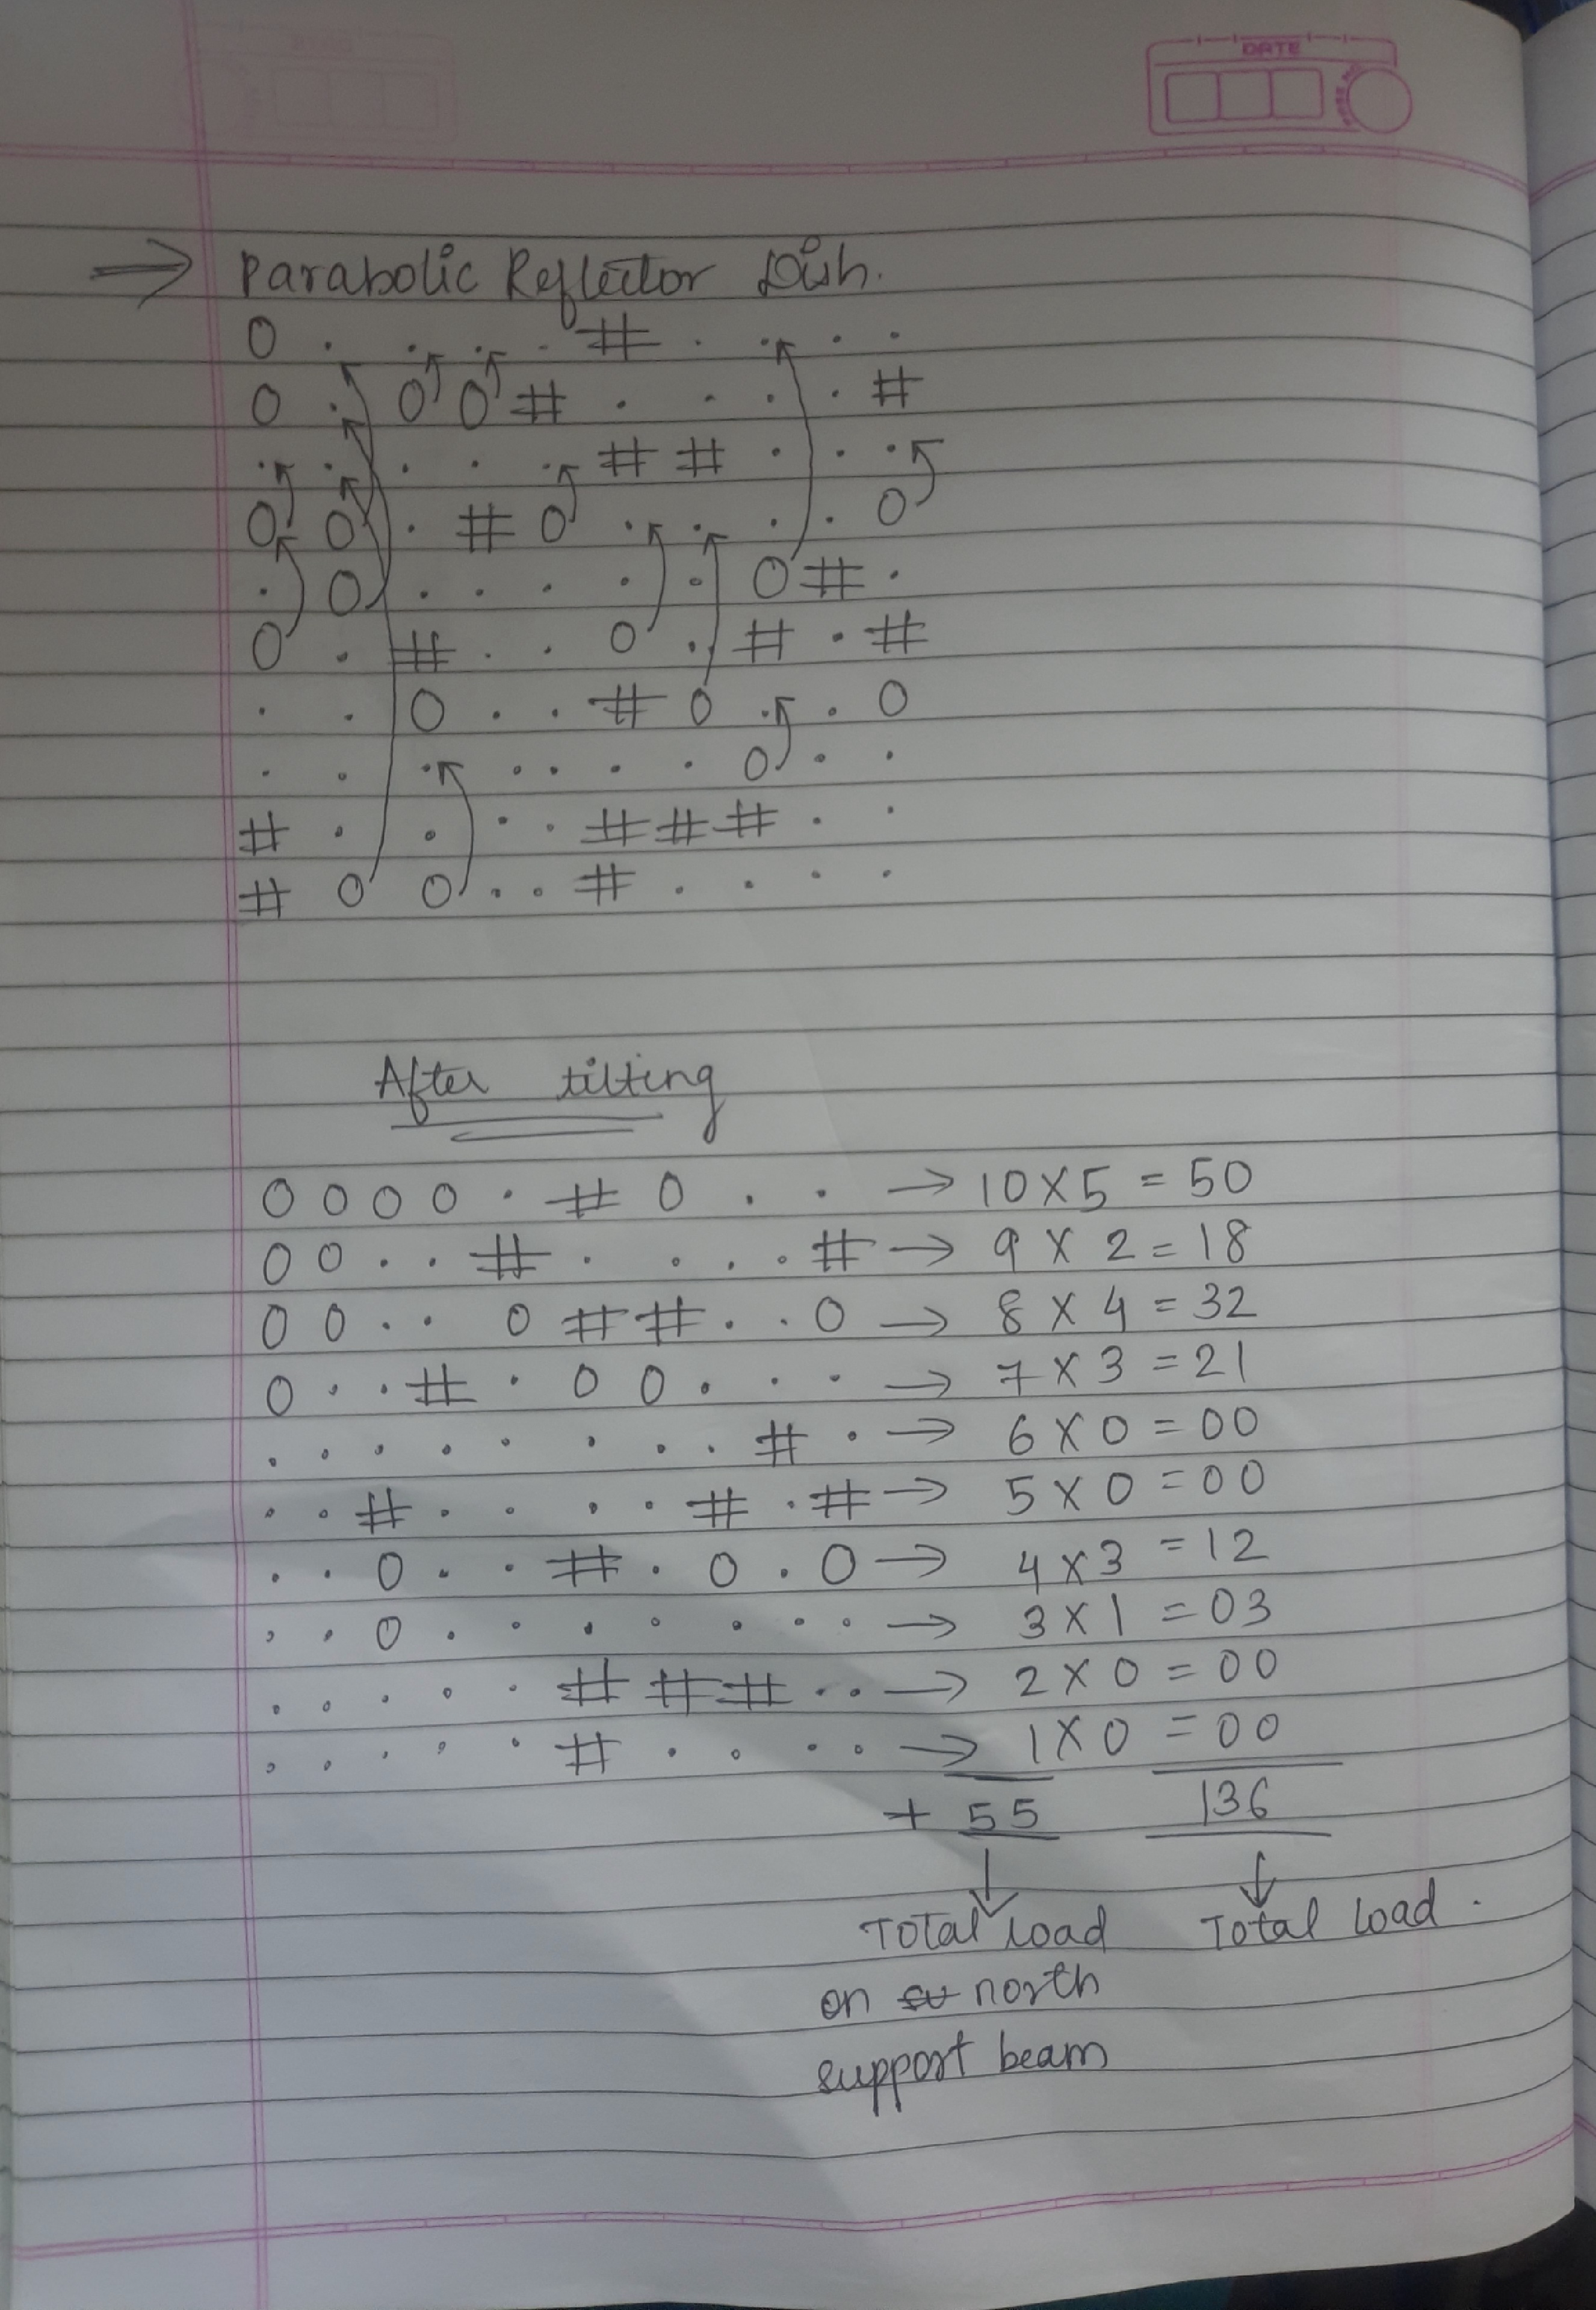 DATE
⇒ Parabolic Reflector Dish.
O . . . . # . . . .
O . O O # . . . . #
. . . . . # # . . .
O O . # O . . . . O
. O . . . . . O # .
O . # . . O . # . #
. . O . . # O . . O
. . . . . . . O . .
# . . . . # # # . .
# O O . . # . . . .
After tilting
O O O O . # O . . → 10 X 5 = 50
O O . . # . . . . # → 9 X 2 = 18
O O . . O # # . . O → 8 X 4 = 32
O . . # . O O . . . → 7 X 3 = 21
. . . . . . . . # . → 6 X 0 = 00
. . # . . . . # . # → 5 X 0 = 00
. . O . . # . O . O → 4 X 3 = 12
. . O . . . . . . . → 3 X 1 = 03
. . . . . # # # . . → 2 X 0 = 00
. . . . . # . . . . → 1 X 0 = 00
+ 55 136
↓ ↓
Total load Total load .
on north
support beam